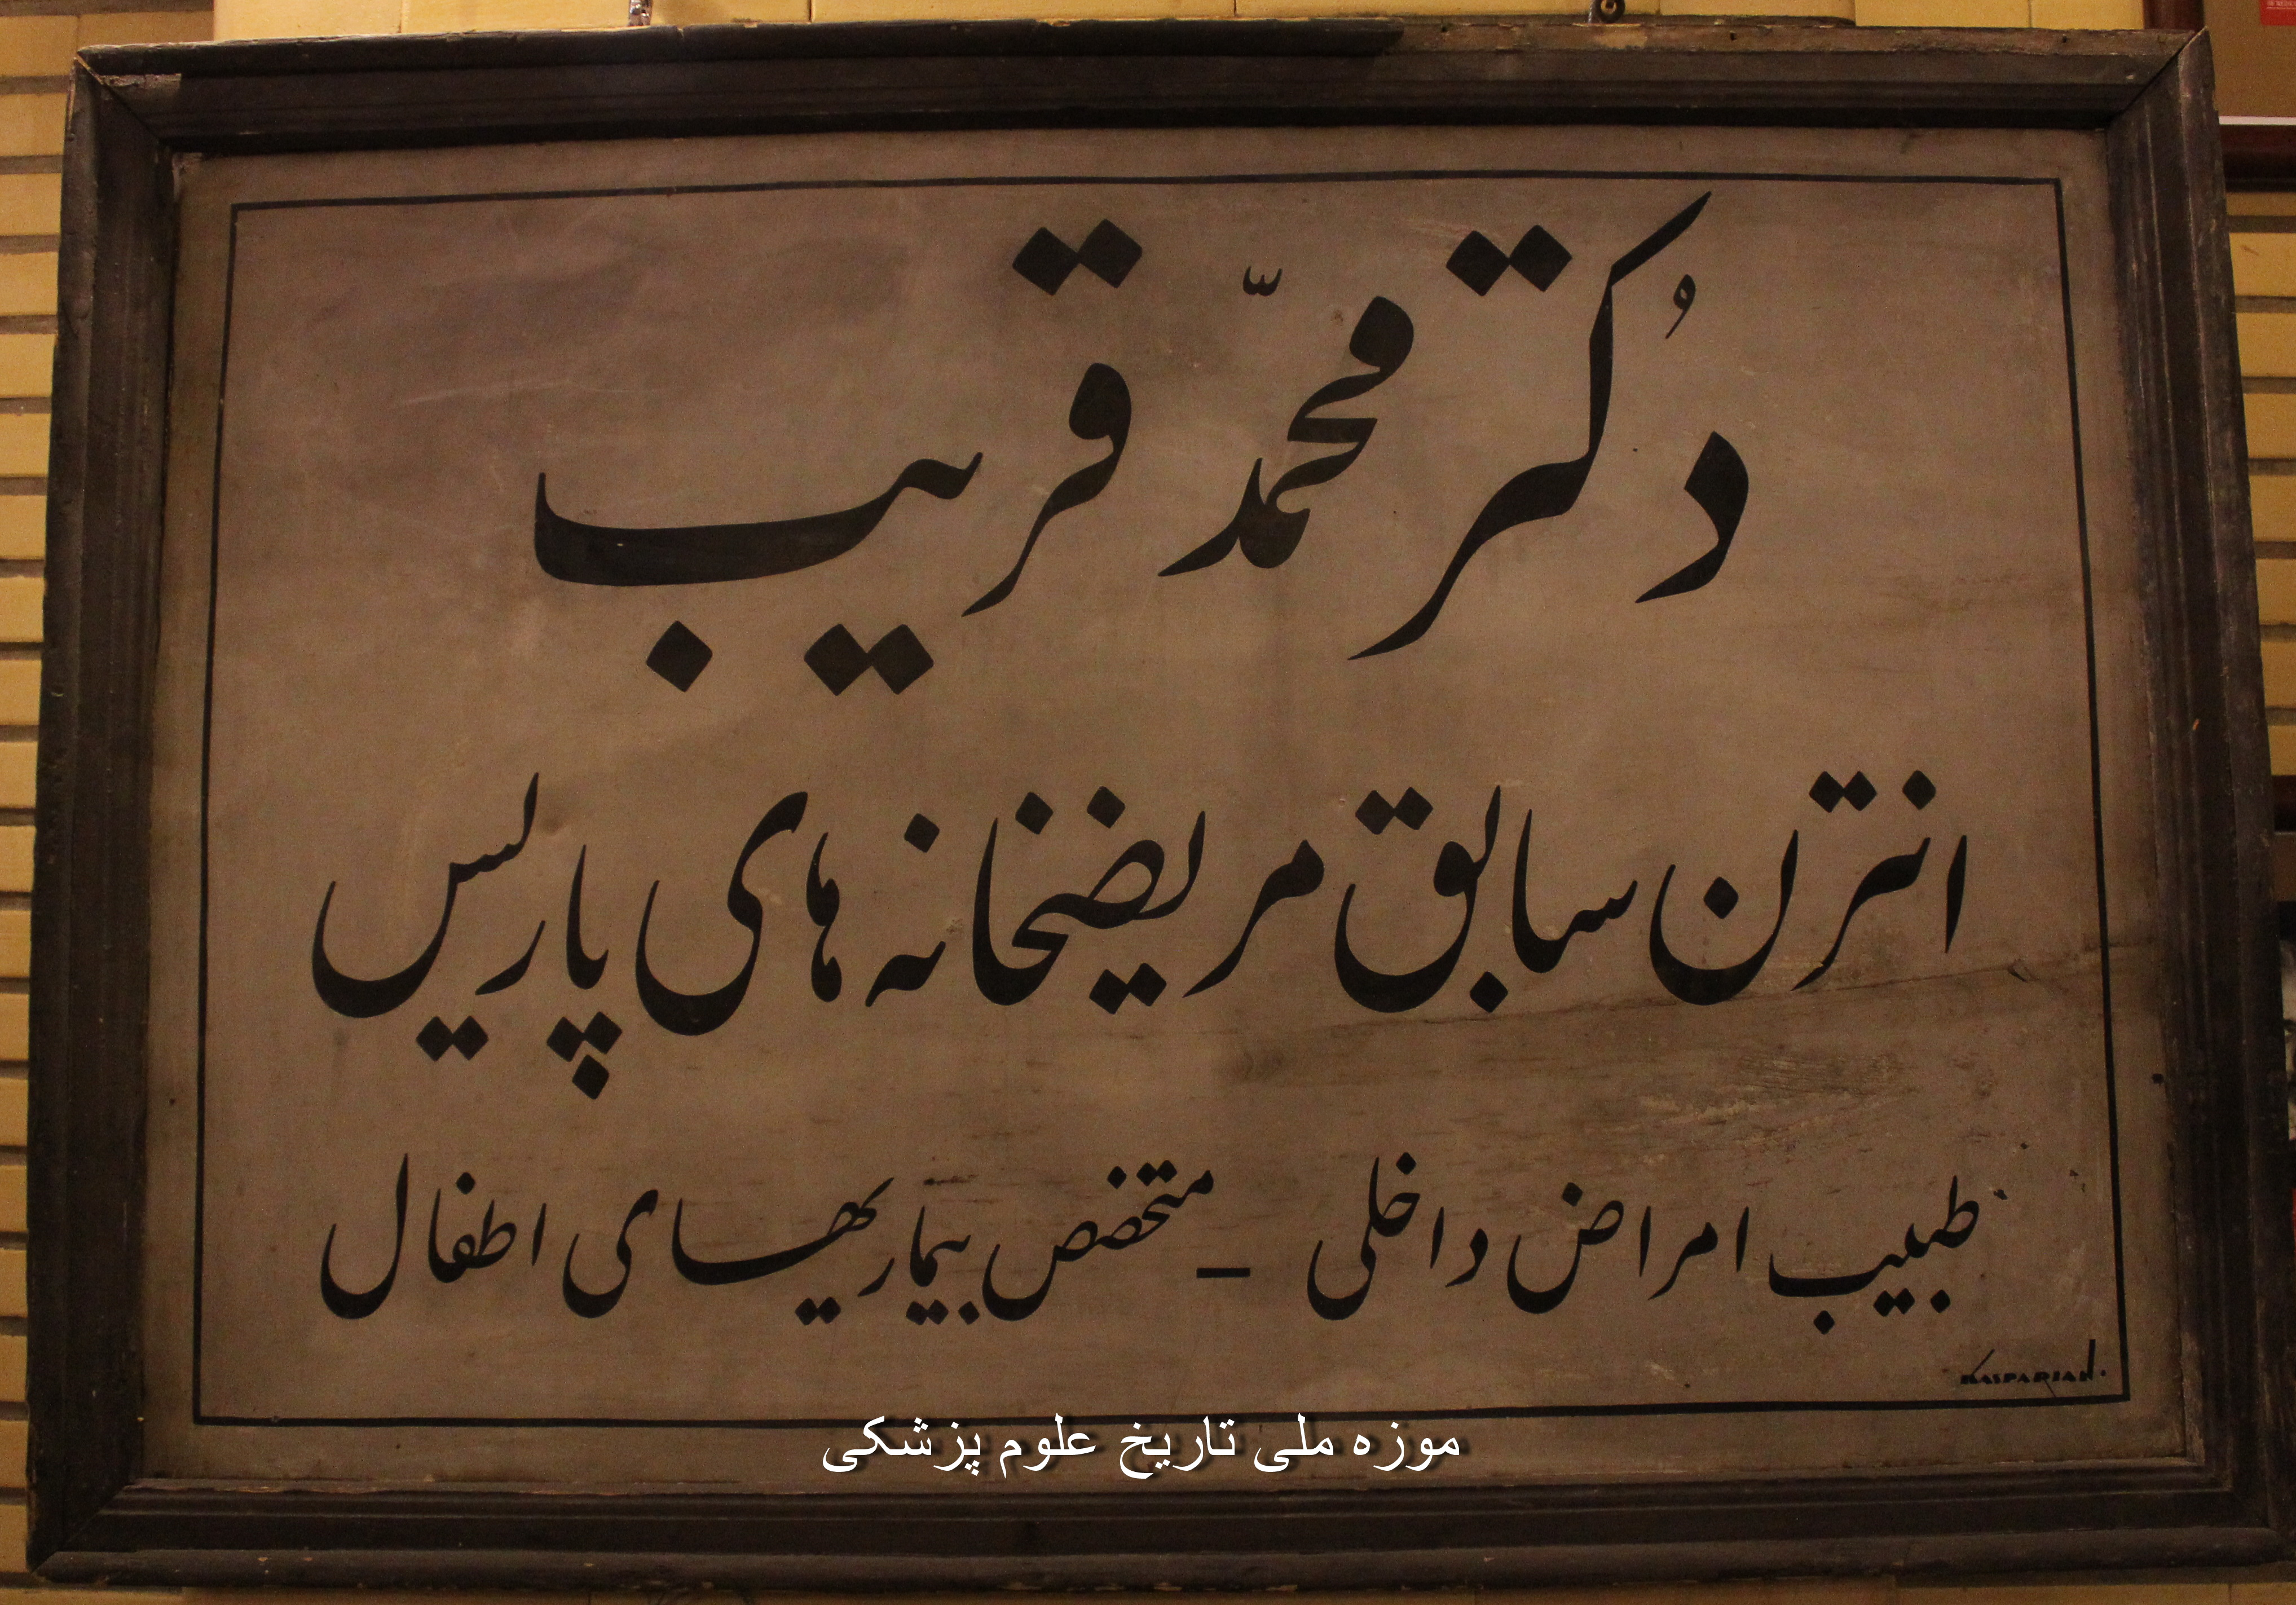 دُکتر محمّد قریب
انترن سابق مریضخانه های پاریس
طبیب امراض داخلی – متخصص بیماریهای اطفال
KASPARIAN.
موزه ملی تاریخ علوم پزشکی